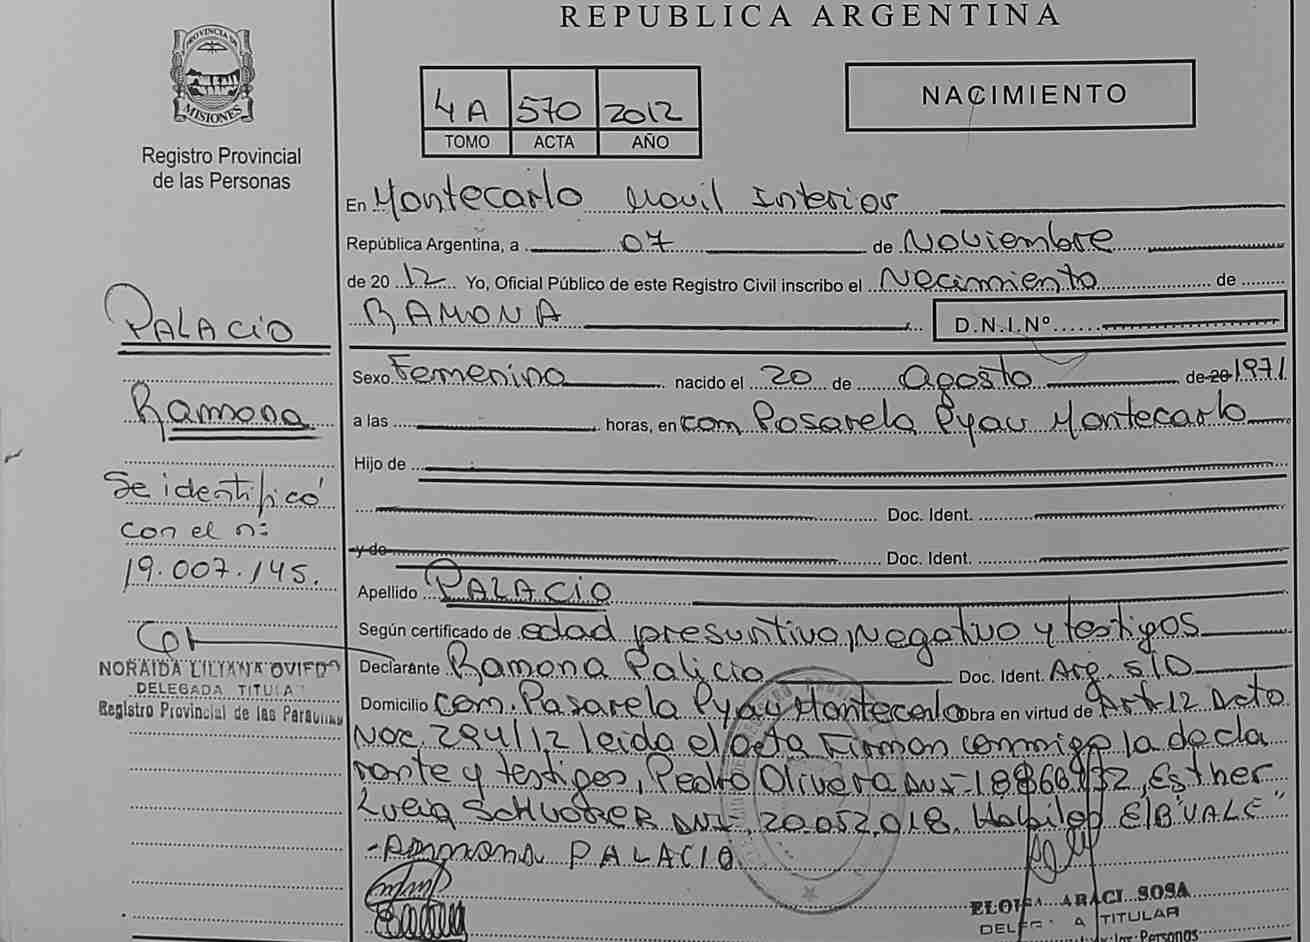 REPUBLICA ARGENTINA
PROVINCIA DE MISIONES
Registro Provincial
de las Personas
4A 570 2012
TOMO ACTA AÑO
NACIMIENTO
En Montecarlo Movil Interior
República Argentina, a 07 de Noviembre
de 2012 Yo, Oficial Público de este Registro Civil inscribo el Nacimiento de
RAMONA D.N.I.Nº
Sexo Femenino nacido el 20 de Agosto de 20 1971
a las horas, en com Pasarela Pyau Montecarlo
Hijo de
Doc. Ident.
y de Doc. Ident.
Apellido PALACIO
Según certificado de edad presuntiva, Negativo y testigos
Declarante Ramona Palicio Doc. Ident. Arg. S/D
Domicilio com. Pasarela Pyau Montecarlo obra en virtud de Art 12 Dcto
Nac. 294/12 leida el acta Firman conmigo la decla
rante y testigos, Pedro Olivera DNI- Esther
Lucia DNI-. 20.052.018. E/B"VALE"
PALACIO
ELOISA ARACI SOSA
DELEGADA TITULAR
PALACIO
Ramona
Se identificó
con el n:
19.007.145.
NORAIDA LILIANA OVIEDO
DELEGADA TITULA
Registro Provincial de las Personas